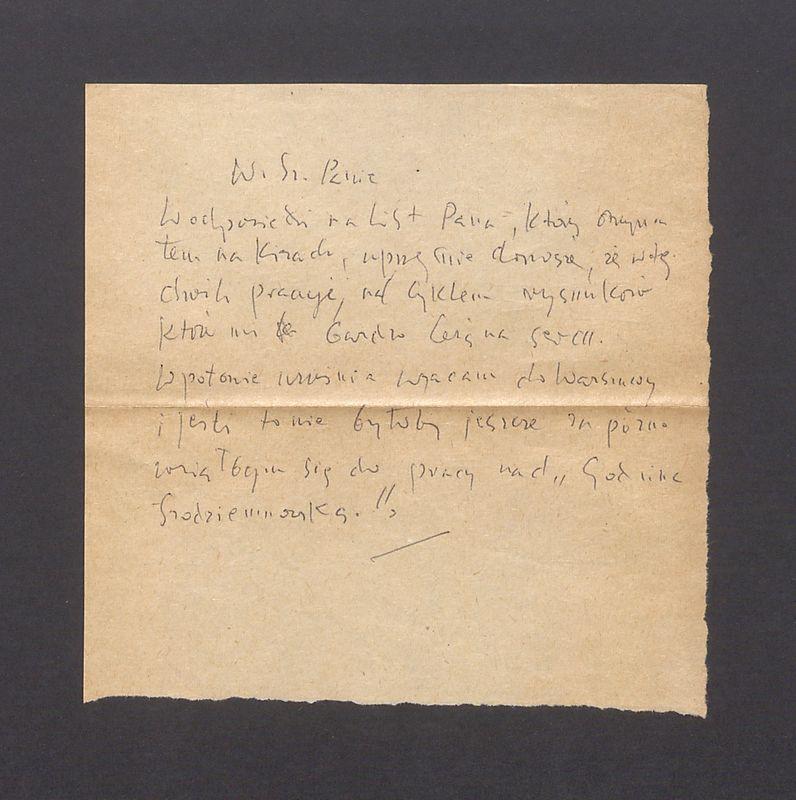 W. Sz. Panie
W odpowiedzi na list Pana, który otrzyma
łem na Kirach, uprzejmie donoszę, że w tej
chwili pracuję nad cyklem rysunków
który mi bardzo leży na sercu.
W połowie września wracam do Warszawy
i jeśli to nie byłoby jeszcze za późno
wziąłbym się do pracy nad „Godziną
Śródziemnomorską."